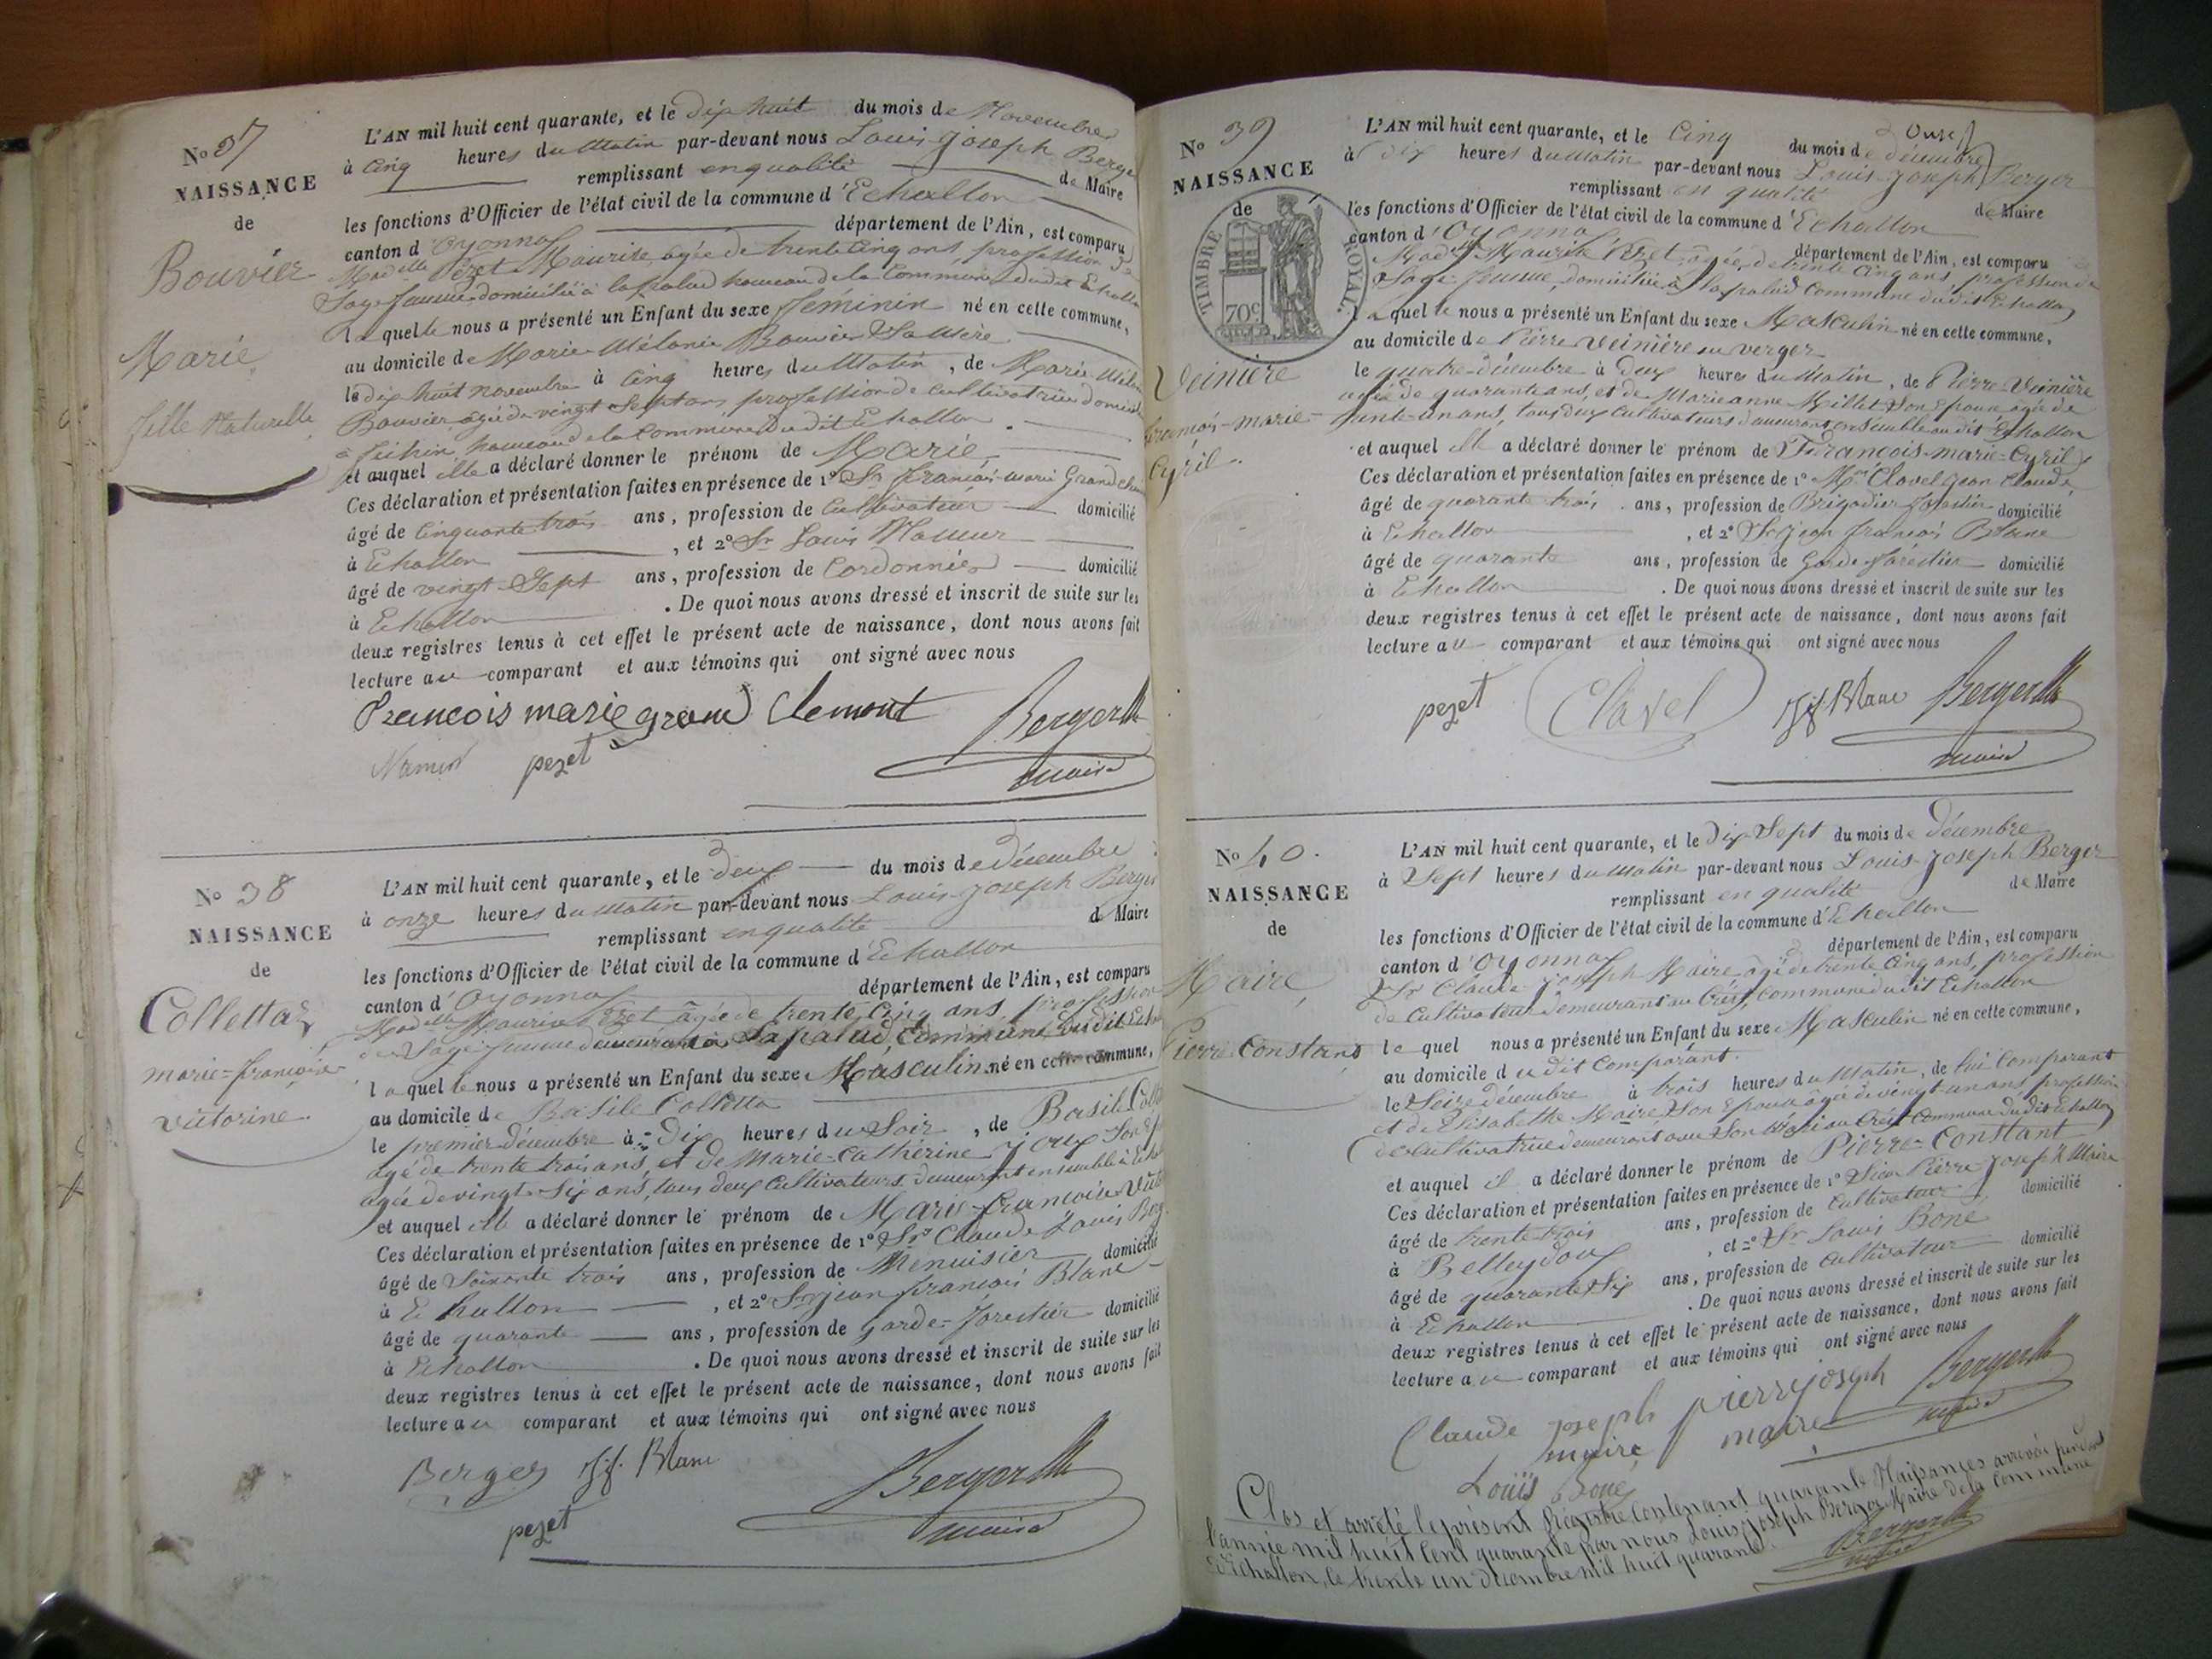 No 37
NAISSANCE
de
Bouvier
Marie
fille Naturelle
L'AN mil huit cent quarante, et le dix huit du mois de Novembre
à Cinq heures du Matin par-devant nous Louis joseph Berger
remplissant en qualité de Maire
les fonctions d'Officier de l'état civil de la commune d'Echallon
canton d'Oyonnax département de l'Ain, est comparu
Mad elle Pézet Maurise, agée de trente Cinq ans, profession de
Sage femme domiciliée à lapalud hameau de la Commune dudit Echallon
laquelle nous a présenté un Enfant du sexe féminin né en cette commune,
au domicile de Marie Mélanie Bouvier Sa Mère
le dix huit novembre à Cinq heures du Matin, de Marie Mélanie
Bouvier agée de vingt Sept ans, profession de Cultivatrice
hameau de la Commune dudit Echallon
et auquel elle a déclaré donner le prénom de Marie
Ces déclaration et présentation faites en présence de 1° Sr francois marie Grand
âgé de Cinquante trois ans, profession de Cultivateur domicilié
à Echallon, et 2° Sr Louis
âgé de vingt Sept ans, profession de Cordonnier domicilié
à Echallon. De quoi nous avons dressé et inscrit de suite sur les
deux registres tenus à cet effet le présent acte de naissance, dont nous avons fait
lecture au comparant et aux témoins qui ont signé avec nous
Francois marie grand Clement
pezet Berger
maire
No 38
NAISSANCE
de
Colletta
marie=françoise
victorine
L'AN mil huit cent quarante, et le deux du mois de décembre
à onze heures du Matin par-devant nous Louis joseph Berger
remplissant en qualité de Maire
les fonctions d'Officier de l'état civil de la commune d'Echallon
canton d'Oyonnax département de l'Ain, est comparu
Mad elle Maurise Pézet âgée de trente Cinq ans, profession
de Sage femme demeurant à Lapalud, Commune dudit Echallon
laquelle nous a présenté un Enfant du sexe Masculin né en cette commune,
au domicile de Basile Colletta
le premier décembre à Dix heures du Soir, de Basile
agé de trente trois ans, et de Marie=Catherine joux Son
agée de vingt Six ans, tous deux Cultivateurs demeurant ensemble à
et auquel elle a déclaré donner le prénom de Marie françoise
Ces déclaration et présentation faites en présence de 1° Sr Claude Louis
âgé de Soixante trois ans, profession de Menuisier domicilié
à Echallon, et 2° Sr jean francois Blanc
âgé de quarante ans, profession de garde=forestier domicilié
à Echallon. De quoi nous avons dressé et inscrit de suite sur les
deux registres tenus à cet effet le présent acte de naissance, dont nous avons fait
lecture au comparant et aux témoins qui ont signé avec nous
Berger jf. Blanc Berger
pezet maire
No 39
NAISSANCE
de
TIMBRE ROYAL.
70c
Veinière
françois-marie-
Cyril.
L'AN mil huit cent quarante, et le Cinq du mois de décembre
à dix heures du Matin par-devant nous Louis joseph Berger
remplissant en qualité de Maire
les fonctions d'Officier de l'état civil de la commune d'Echallon
canton d'Oyonnax département de l'Ain, est comparu
Mad elle Maurise Pézet, agée de trente Cinq ans, profession de
Sage femme domiciliée à lapalud commune dudit Echallon
laquelle nous a présenté un Enfant du sexe Masculin né en cette commune,
au domicile de Pierre Veinière au verger
le quatre décembre à deux heures du Matin, de Pierre Veinière
agé de quarante ans, et de Marie anne Millet Son Epouse agée de
trente-un ans, tous deux Cultivateurs demeurant ensemble au dit Echallon
et auquel elle a déclaré donner le prénom de François-marie-Cyril
Ces déclaration et présentation faites en présence de 1° Mr Clavel jean Claude
âgé de quarante trois ans, profession de Brigadier forestier domicilié
à Echallon, et 2° Sr jean francois Blanc
âgé de quarante ans, profession de Garde-forestier domicilié
à Echallon. De quoi nous avons dressé et inscrit de suite sur les
deux registres tenus à cet effet le présent acte de naissance, dont nous avons fait
lecture au comparant et aux témoins qui ont signé avec nous
pezet Clavel jf. Blanc Berger
maire
No 40.
NAISSANCE
de
Maire
Pierre Constant
L'AN mil huit cent quarante, et le Dix Sept du mois de décembre
à Sept heures du Matin par-devant nous Louis joseph Berger
remplissant en qualité de Maire
les fonctions d'Officier de l'état civil de la commune d'Echallon
canton d'Oyonnax département de l'Ain, est comparu
Sr Claude joseph Maire agé de trente Cinq ans, profession
de Cultivateur demeurant au Crêt, commune dudit Echallon
lequel nous a présenté un Enfant du sexe Masculin né en cette commune,
au domicile du dit Comparant.
le Seize décembre à trois heures du Matin, de lui Comparant
et de Elisabethe Maire Son Epouse agée de vingt-un ans profession
de Cultivatrice demeurant avec Son Mari au Crêt Commune dudit Echallon
et auquel il a déclaré donner le prénom de Pierre=Constant
Ces déclaration et présentation faites en présence de 1° Sieur Pierre joseph Maire
âgé de trente trois ans, profession de Cultivateur domicilié
à Belleydoux, et 2° Sr Louis Bone
âgé de quarante Six ans, profession de Cultivateur domicilié
à Echallon. De quoi nous avons dressé et inscrit de suite sur les
deux registres tenus à cet effet le présent acte de naissance, dont nous avons fait
lecture au comparant et aux témoins qui ont signé avec nous
Claude joseph pierre joseph Berger
maire maire maire
Louis Bone
Clos et arrêté le présent Régistre Contenant quarante Naissances arrivées pendant
l'année mil huit Cent quarante par nous Louis joseph Berger Maire de la Commune
d'Echallon, le trente un décembre mil huit quarante.
Berger
maire